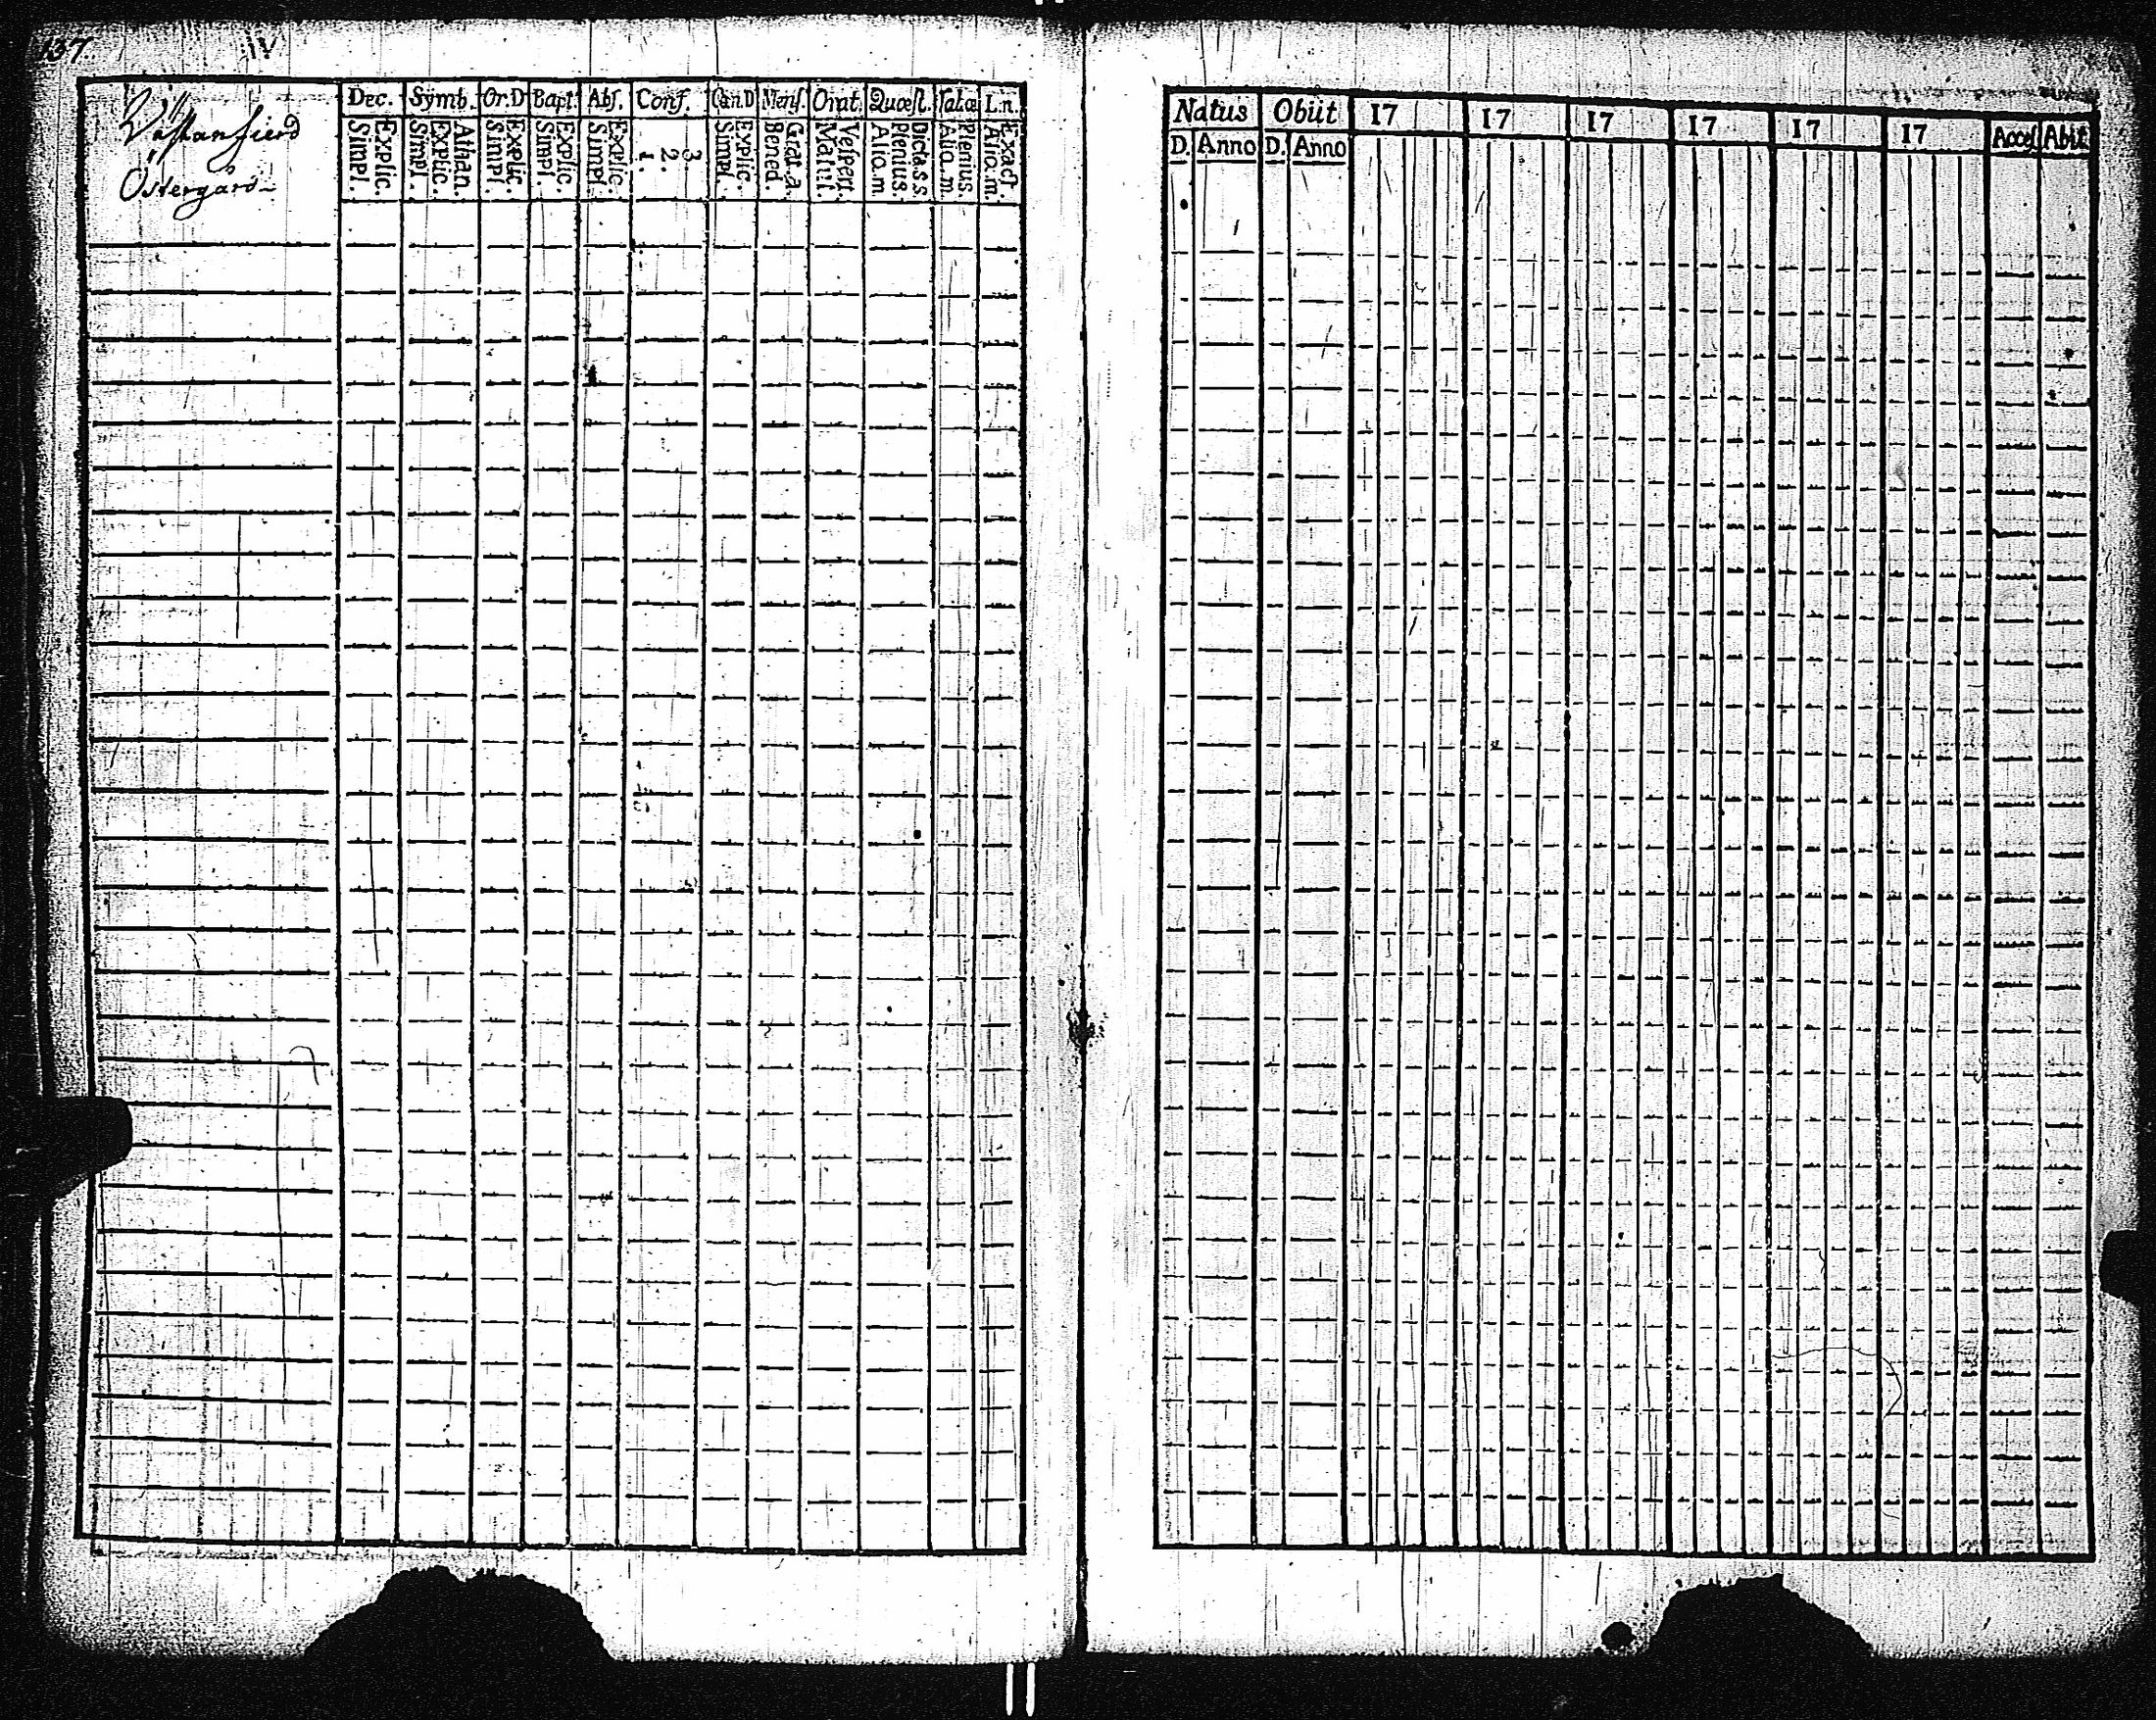 137.
IV
Västanfierd
Östergård
Dec. Symb. Or.D Bapt. Abſ. Conf. Can.D Menſ. Orat. Quæſt. Tabæ L.n.
Explic. Simpl. Athan. Explic. Simpl. Explic. Simpl. Explic. Simpl. Explic. Simpl. 3. 2. 1. Explic. Simpl. Grat.a. Bened. Veſpert. Matut. Dicta.s.s. Plenius. Aliq.m. Plenius. Aliq.m. Exact. Aliq.m.
Natus Obiit 17 17 17 17 17 17 Acceſ Abit
D. Anno D. Anno